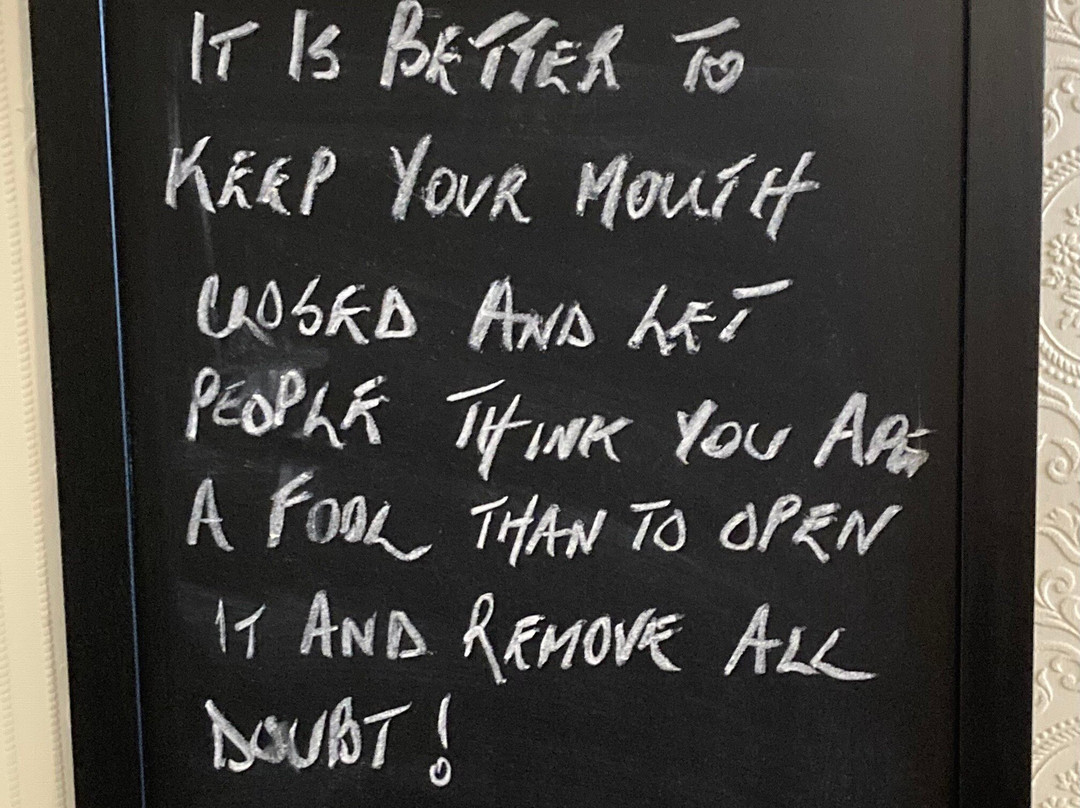 IT IS BETTER TO
KEEP YOUR MOUTH
CLOSED AND LET
PEOPLE THINK YOU ARE
A FOOL THAN TO OPEN
IT AND REMOVE ALL
DOUBT!